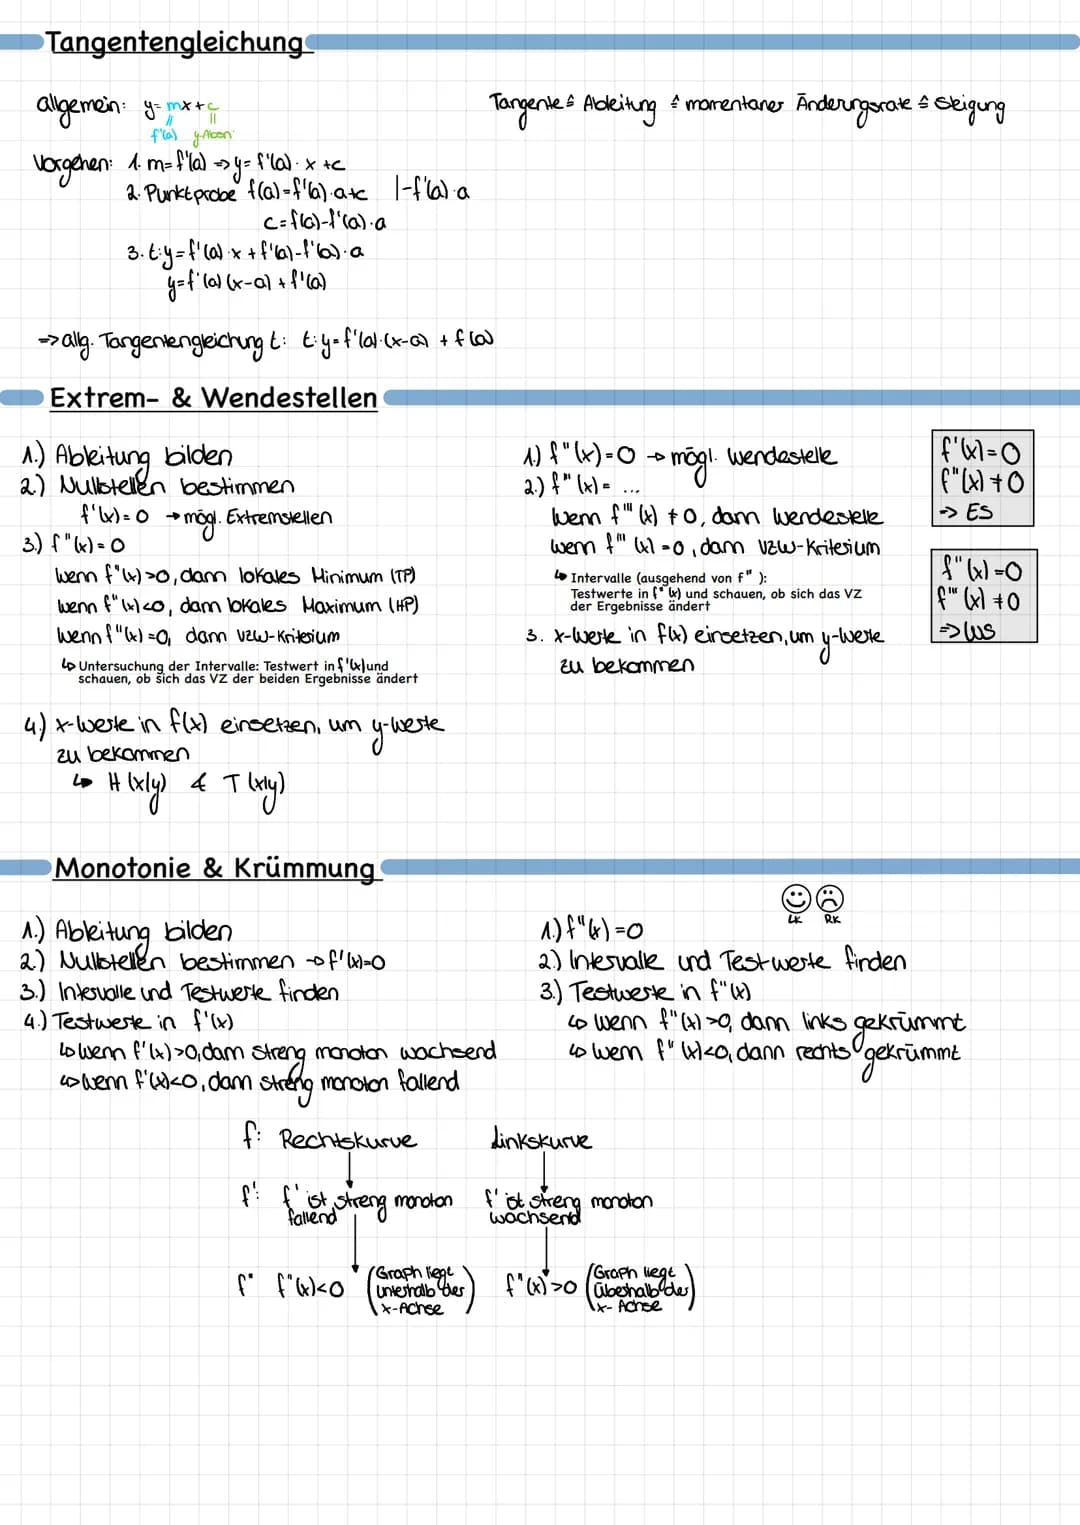 Tangentengleichung
allgemein: y= mx+c
f'(a) y-Absn.
Tangente ≙ Ableitung ≙ momentaner Änderungsrate ≙ Steigung
Vorgehen: 1. m=f'(a) => y= f'(a)· x +c
2. Punktprobe f(a)=f'(a)·a+c |-f'(a)·a
c=f(a)-f'(a)·a
3. t:y=f'(a)·x+f'(a)-f'(a)·a
y=f'(a)(x-a)+f'(a)
=> allg. Tangentengleichung t: t:y=f'(a)·(x-a) + f(a)
Extrem- & Wendestellen
1.) Ableitung bilden
2.) Nullstellen bestimmen
f'(x)=0 → mögl. Extremstellen
3.) f"(x)=0
wenn f"(x)>0, dann lokales Minimum (TP)
wenn f"(x)<0, dann lokales Maximum (HP)
wenn f"(x)=0, dann VZW-Kriterium
↳ Untersuchung der Intervalle: Testwert in f'(x) und
schauen, ob sich das VZ der beiden Ergebnisse ändert
4.) x-Werte in f(x) einsetzen, um y-Werte
zu bekommen
↳ H(x|y) & T(x|y)
1.) f"(x)=0 → mögl. Wendestelle
2.) f"'(x)= ...
wenn f"'(x) ≠0, dann Wendestelle
wenn f"'(x)=0, dann VZW-Kriterium
↳ Intervalle (ausgehend von f" ):
Testwerte in f"(x) und schauen, ob sich das VZ
der Ergebnisse ändert
3. x-Werte in f(x) einsetzen, um y-Werte
zu bekommen
f'(x)=0
f"(x)≠0
-> ES
f"(x)=0
f"'(x)≠0
=> WS
Monotonie & Krümmung
1.) Ableitung bilden
2.) Nullstellen bestimmen → f'(x)=0
3.) Intervalle und Testwerte finden
4.) Testwerte in f'(x)
↳ wenn f'(x)>0, dann streng monoton wachsend
↳ wenn f'(x)<0, dann streng monoton fallend
LK RK
1.) f"(x)=0
2.) Intervalle und Testwerte finden
3.) Testwerte in f"(x)
↳ wenn f"(x)>0, dann links gekrümmt
↳ wenn f"(x)<0, dann rechts gekrümmt
f: Rechtskurve Linkskurve
f': f' ist streng monoton fallend f' ist streng monoton wachsend
f" f"(x)<0 (Graph liegt unterhalb der x-Achse) f"(x)>0 (Graph liegt überhalb der x-Achse)